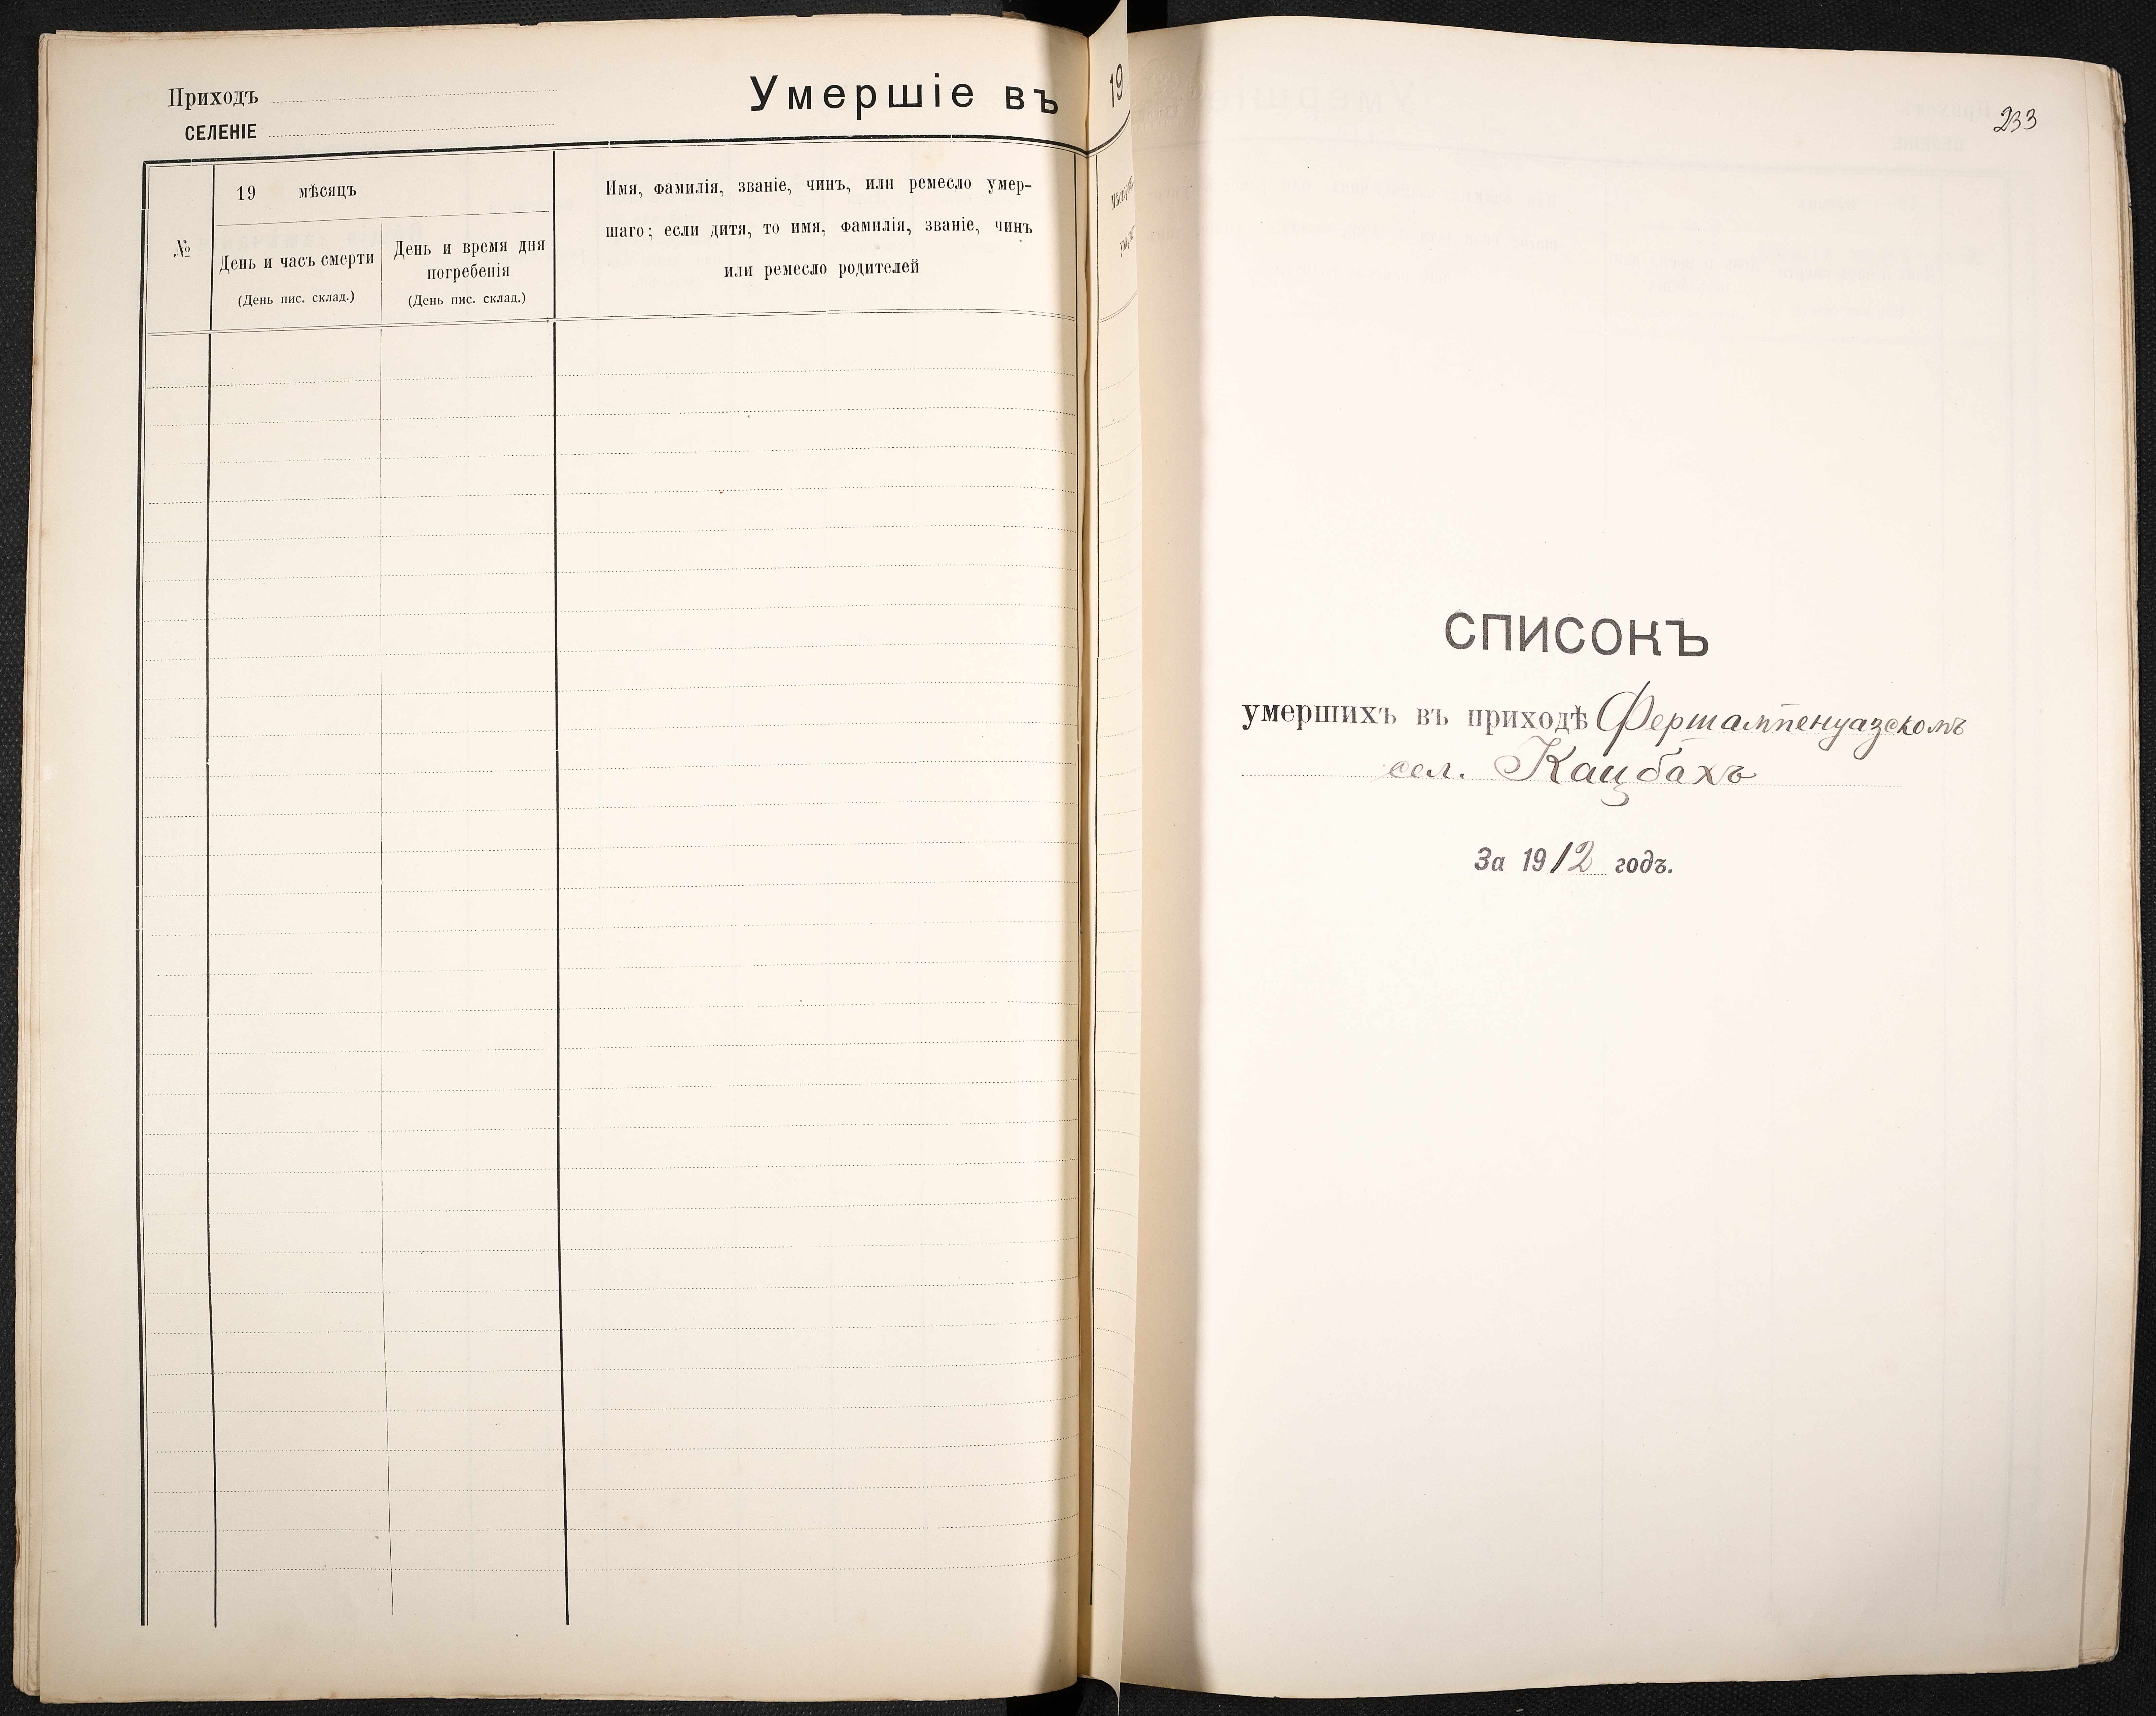 Приходъ
СЕЛЕНІЕ
Умершіе въ 19
№
19 мѣсяцъ
День и часъ смерти
(День пис. склад.)
День и время дня
погребенія
(День пис. склад.)
Имя, фамилія, званіе, чинъ, или ремесло умер-
шаго; если дитя, то имя, фамилія, званіе, чинъ
или ремесло родителей
233
СПИСОКЪ
умершихъ въ приходѣ Фершампенуазскомъ
сел. Кацбахъ
За 1912 годъ.